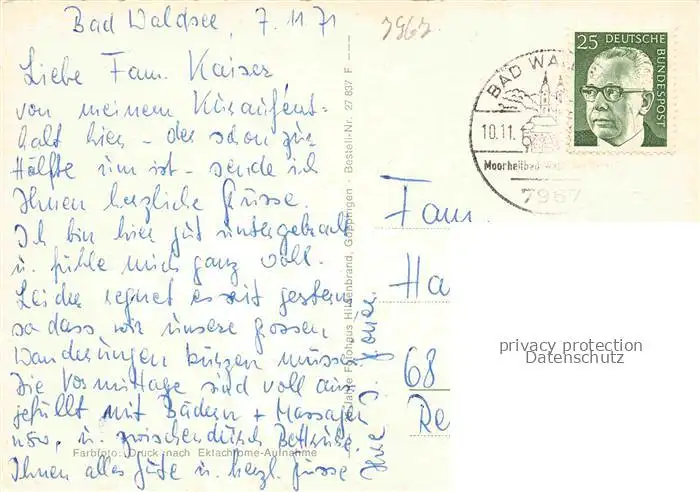 Bad Waldsee, 7.11.71
Liebe Fam. Kaiser
von meinem Kuraufent-
halt hier - der schon zur
Hälfte um ist - sende ich
Ihnen herzliche Grüsse.
Ich bin hier gut untergebracht
u. fühle mich ganz wohl.
Leider regnet es seit gestern
so dass wir unsere grossen
Wanderungen kürzen müssen.
Die Vormittage sind voll aus-
gefüllt mit Bädern + Massagen
usw. u. zwischendurch Bettruhe.
Ihnen alles Gute u. herzl. Grüsse
Ihre J.
Farbfoto: Druck nach Ektachrome-Aufnahme
Fotohaus Hildenbrand, Göppingen - Bestell-Nr. 27 837 F
7967
BAD WAL
10.11.
Moorheilbad
7967
25 DEUTSCHE
BUNDESPOST
Fam.
Ha
68
Re
privacy protection
Datenschutz